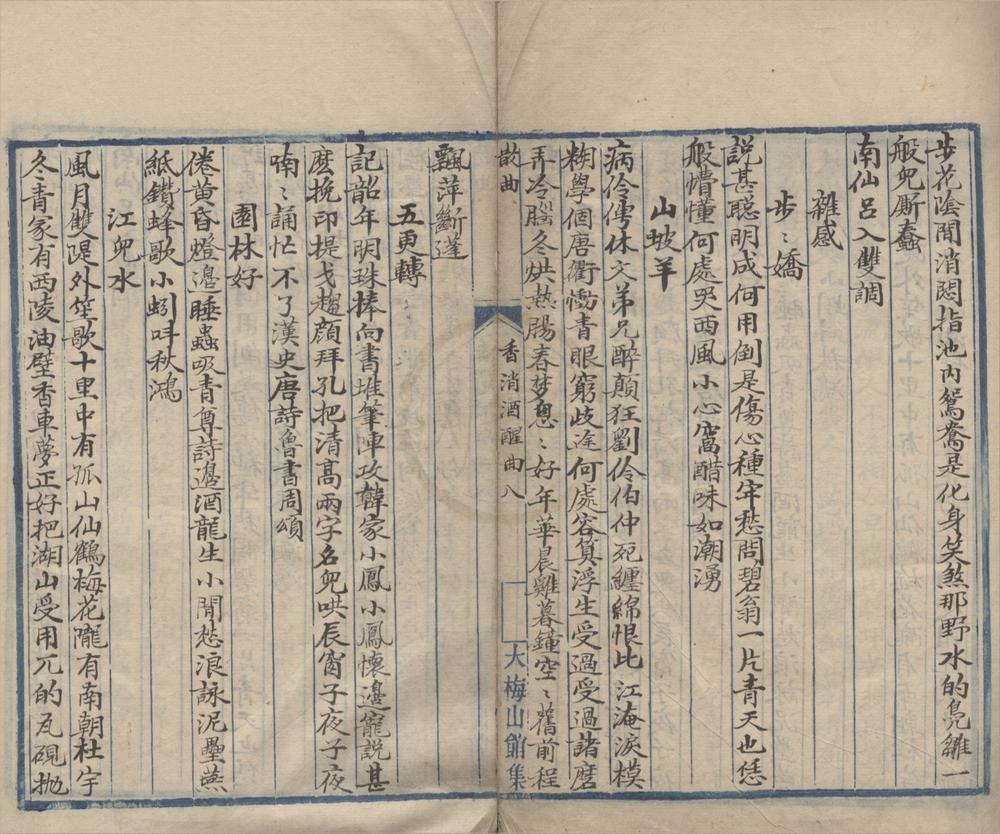 步花陰閒消悶指池內鴛鴦是化身笑煞那野水的鳧雛一
般兒厮蠢
南仙呂入雙調
雜感
步〻嬌
說甚聰明成何用倒是傷心種牢愁問碧翁一片青天也恁
般懵懂何處哭西風小心窩醋味如潮湧
山坡羊
病伶俜休文弟兄醉顛狂劉伶伯仲死纏綿恨比江淹淚模
糊學個唐衢慟青眼窮歧途何處容算浮生受過受過諸磨
弄冷腦冬烘熱腸春夢怱〻好年華晨雞暮鐘空〻舊前程
散曲
香消酒醒曲
八
大梅山館集
飄萍斷蓬
五更轉
記韶年明珠捧向書堆筆陣攻韓家小鳳小鳳懷邊寵說甚
麽挽印提戈趨顏拜孔把清高兩字名兒哄辰窗子夜子夜
喃〻誦忙不了漢史唐詩魯書周頌
園林好
倦黃昏燈邊睡蟲吸青尊詩邊酒龍生小閒愁浪詠泥壘燕
紙鑽蜂歌小蚓吽秋鴻
江兒水
風月雙隄外笙歌十里中有孤山仙鶴梅花隴有南朝杜宇
冬青冢有西陵油壁香車夢正好把湖山受用兀的瓦硯抛